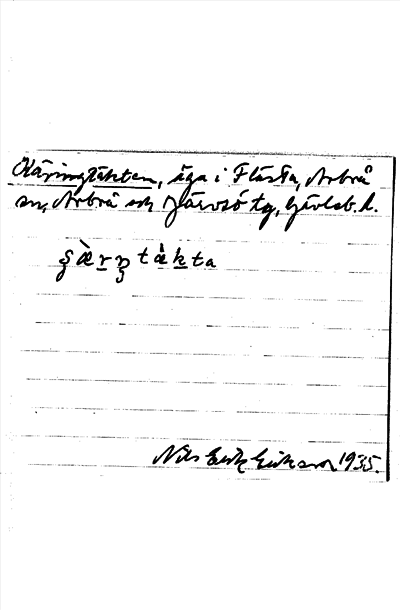 Käringtäkten, äga i Flästa, Arbrå
sn, Arbrå och Järvsö tg, Gävleb. l.
Nils Erik Eriksson 1935.